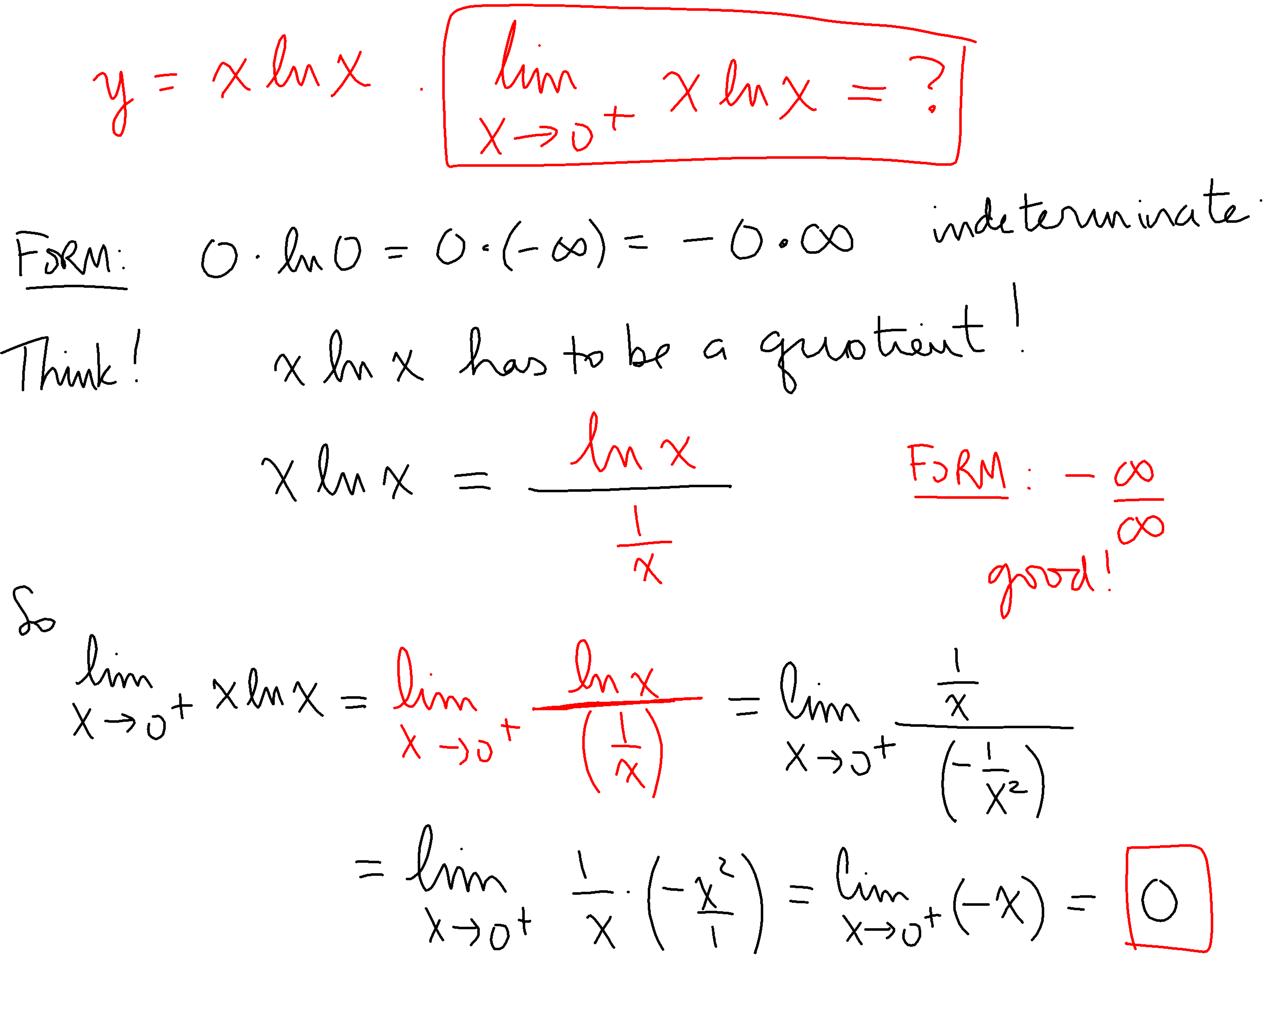 y = x ln x . lim x→0⁺ x ln x = ?
FORM: 0 · ln 0 = 0 · (-∞) = - 0 · ∞ indeterminate.
Think! x ln x has to be a quotient!
x ln x = ln x / (1/x) FORM: - ∞/∞
good!
So
lim x→0⁺ x ln x = lim x→0⁺ ln x / (1/x) = lim x→0⁺ (1/x) / (-1/x²)
= lim x→0⁺ 1/x · (-x²/1) = lim x→0⁺ (-x) = 0